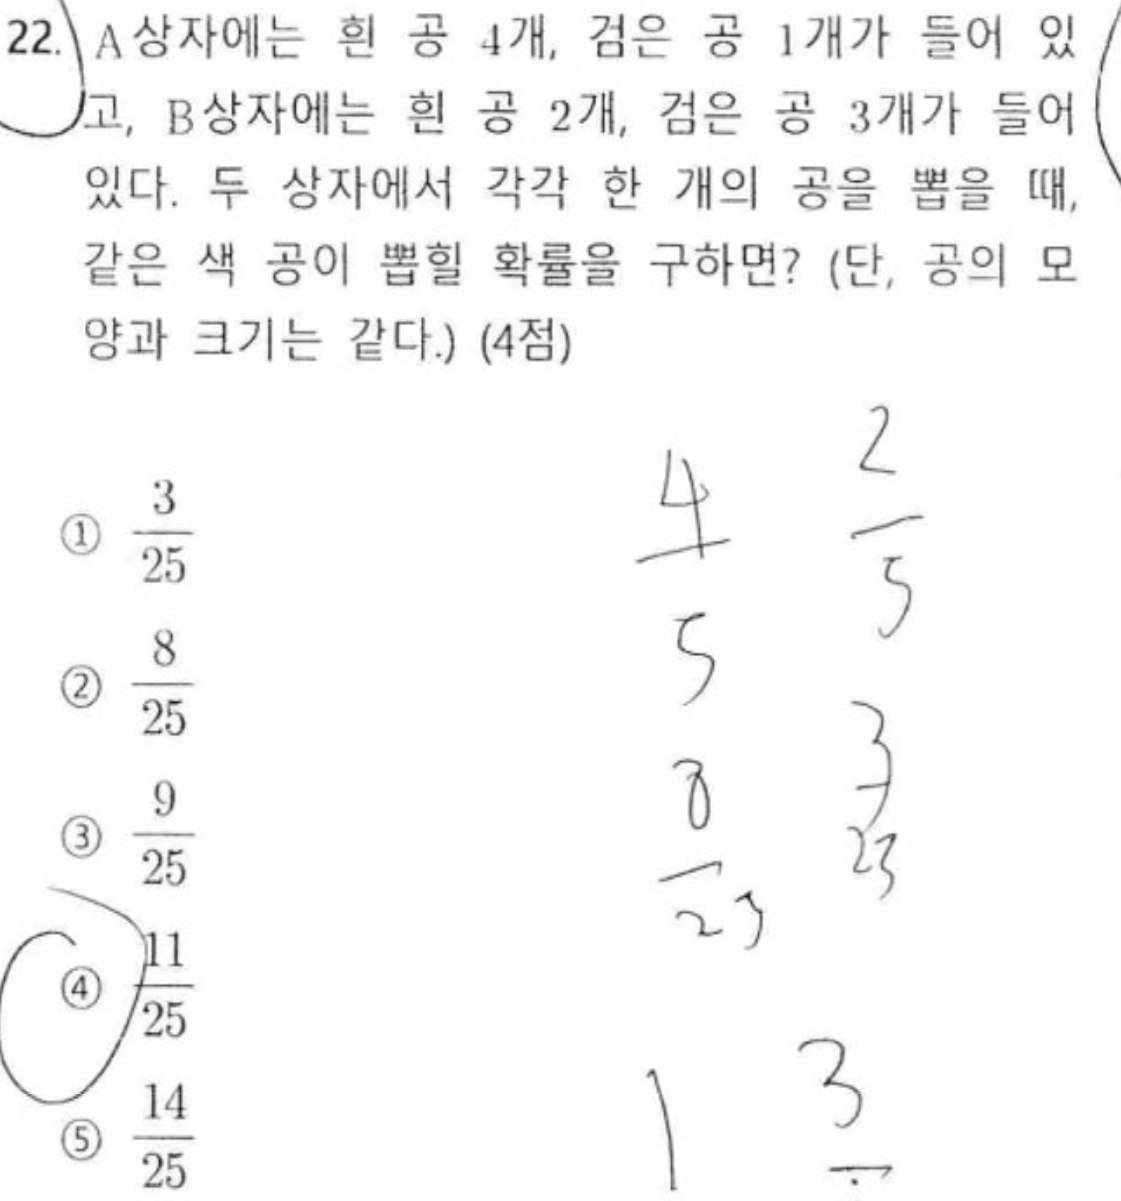 22. A상자에는 흰 공 4개, 검은 공 1개가 들어 있
고, B상자에는 흰 공 2개, 검은 공 3개가 들어
있다. 두 상자에서 각각 한 개의 공을 뽑을 때,
같은 색 공이 뽑힐 확률을 구하면? (단, 공의 모
양과 크기는 같다.) (4점)
① 3/25
② 8/25
③ 9/25
④ 11/25
⑤ 14/25
4/5 2/5
8/25 3/25
1 3